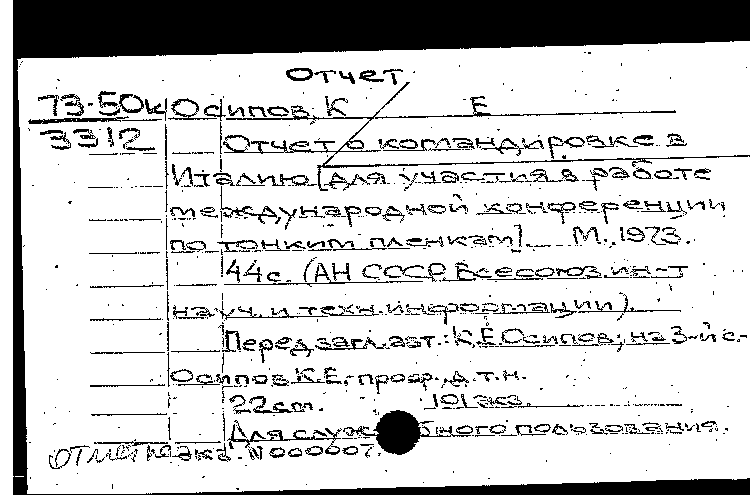 Отчет
73-50к Осипов, К Е
3312 Отчет о командировке в
Италию [для участия в работе
международной конференции
по тонким пленкам]. М., 1973.
44с. (АН СССР. Всесоюз. ин-т
науч. и техн. информации).
Перед загл. авт.: К.Е. Осипов; на 3-й с.-
Осипов К.Е.-проф., д.т.н.
22см. 101 экз.
Для служебного пользования.
экз. N 000007.